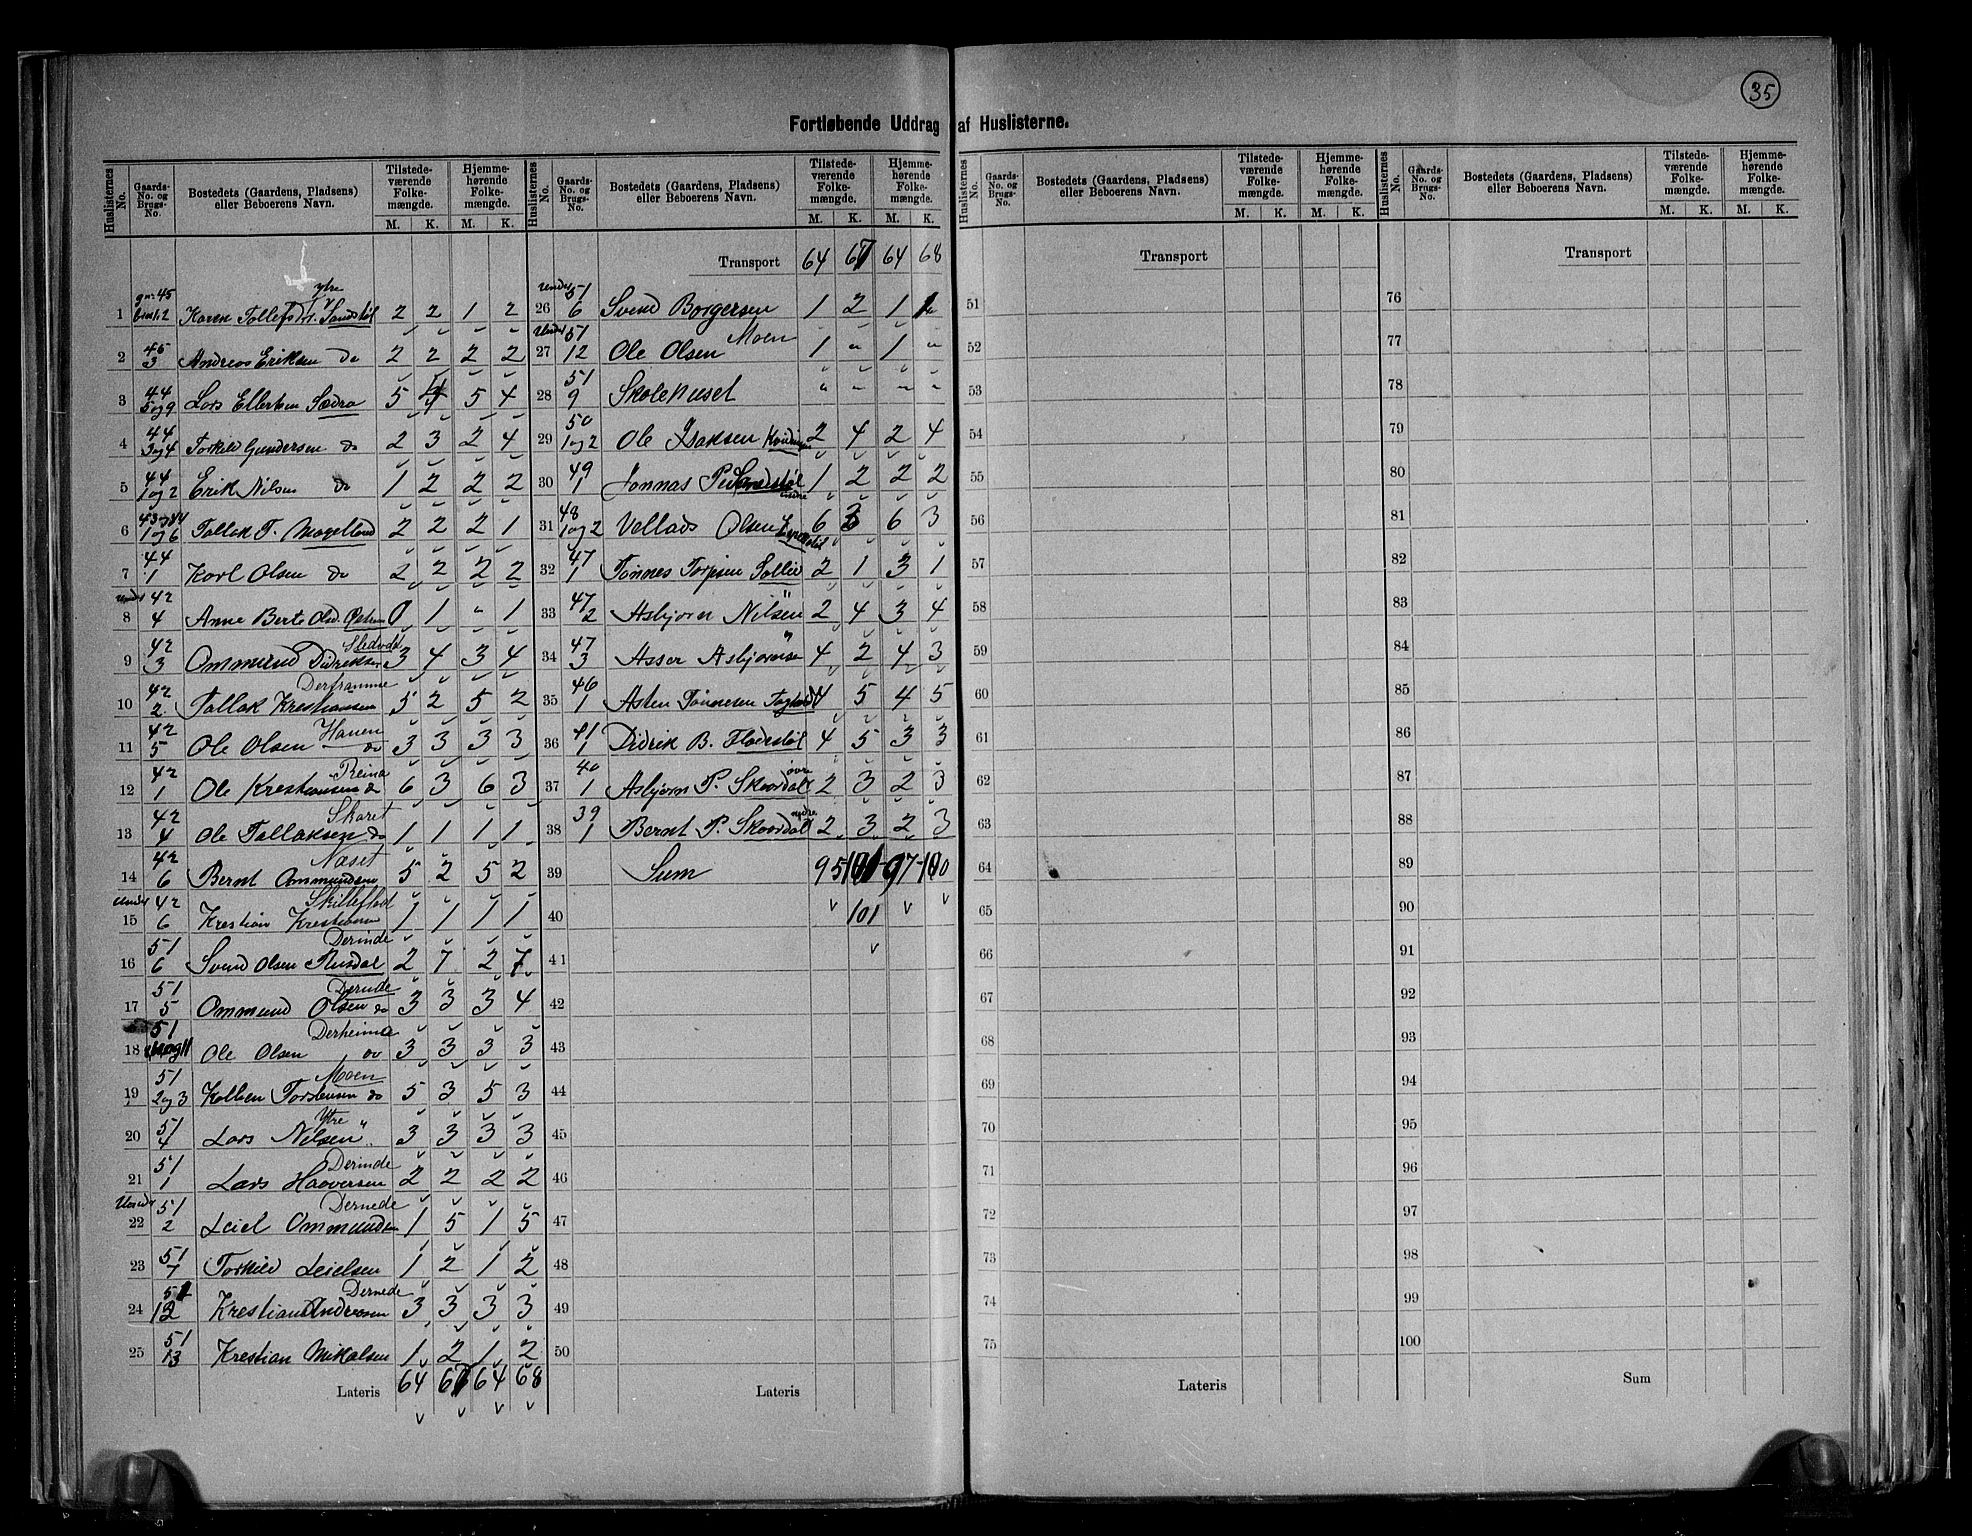 35
Fortløbende Uddrag af Huslisterne.
Huslisternes No. Gaards-No. og Brugs-No. Bostedets (Gaardens, Pladsens) eller Beboerens Navn. Tilstedeværende Folkemængde. M. K. Hjemmehørende Folkemængde. M. K.
1 gn. 45 1,2 Karen Tollefsdt. ytre Sandstøl 2 2 1 2
2 45 3 Andreas Eriksen do 2 2 2 2
3 44 5og9 Lars Ellertsen Sædra 5 4 5 4
4 44 3og4 Torkild Gundersen do 2 3 2 4
5 44 1og2 Erik Nilsen do 1 2 2 2
6 43og44 1og6 Tallak T. 2 2 2 1
7 44 1 Karl Olsen do 2 2 2 2
8 Under 42 4 Anne Berte Olsd. 0 1 " 1
9 42 3 Ommund Didriksen 3 4 3 4
10 42 2 Derframme Tallak Krestiansen 5 2 5 2
11 42 5 Ole Olsen Hauen do 3 3 3 3
12 42 1 Ole Krestiansen Reina do 6 3 6 3
13 42 4 Ole Tallaksen Skaret do 1 1 1 1
14 42 6 Bernt Ommundsen Næset 5 2 5 2
15 Under 42 6 Krestian Krestiansen 1 1 1 1
16 51 6 Svend Olsen Derinde Rusdal 2 7 2 7
17 51 5 Ommund Olsen Dernede do 3 3 3 4
18 51 Ole Olsen Derheime do 3 3 3 3
19 51 2og3 Kolben Torstensen Moen do 5 3 5 3
20 51 4 Lars Nilsen Ytre " 3 3 3 3
21 51 1 Derinde Lars Haaversen 2 2 2 2
22 Under 51 2 Dernede Leiel Ommundsen 1 5 1 5
23 51 7 Torkild Leielsen 1 2 1 2
24 51 12 Dernede Krestian Andreasen 3 3 3 3
25 51 13 Krestian Mikalsen 1 2 1 2
Lateris 64 67 64 68
Huslisternes No. Gaards-No. og Brugs-No. Bostedets (Gaardens, Pladsens) eller Beboerens Navn. Tilstedeværende Folkemængde. M. K. Hjemmehørende Folkemængde. M. K.
Transport 64 67 64 68
26 Under 51 6 Svend Borgersen 1 2 1 1
27 Under 51 12 Ole Olsen Moen 1 " 1 "
28 51 9 Skolehuset " " " "
29 50 1og2 Ole Isaksen 2 4 2 4
30 49 1 Jonnas Sandstøl 1 2 2 2
31 48 1og2 Vellads Olsen Espestøl 6 3 6 3
32 47 1 Tønnes Torjesen Sollie 2 1 3 1
33 47 2 Asbjørn Nilsen " 2 4 3 4
34 47 3 Asser Asbjørnsen " 4 2 4 3
35 46 1 Asten Tønnesen 4 5 4 5
36 41 1 Didrik B. Flodestøl 4 5 3 3
37 40 1 Asbjørn P. Skovdal øvre 2 3 2 3
38 39 1 Bernt P. Skovdal nedre 2 3 2 3
39 Sum 95 101 97 100
40 101
41
42
43
44
45
46
47
48
49
50
Lateris
Huslisternes No. Gaards-No. og Brugs-No. Bostedets (Gaardens, Pladsens) eller Beboerens Navn. Tilstedeværende Folkemængde. M. K. Hjemmehørende Folkemængde. M. K.
Transport
51
52
53
54
55
56
57
58
59
60
61
62
63
64
65
66
67
68
69
70
71
72
73
74
75
Lateris
Huslisternes No. Gaards-No. og Brugs-No. Bostedets (Gaardens, Pladsens) eller Beboerens Navn. Tilstedeværende Folkemængde. M. K. Hjemmehørende Folkemængde. M. K.
Transport
76
77
78
79
80
81
82
83
84
85
86
87
88
89
90
91
92
93
94
95
96
97
98
99
100
Sum